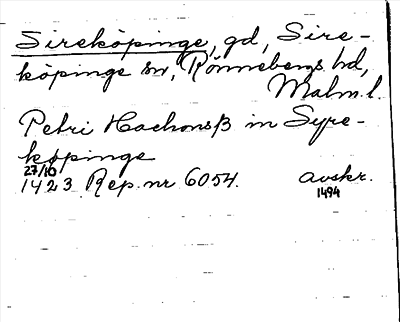 Sireköpinge, gd, Sire-
köpinge sn, Rönnebergs hd,
Malm.l.
Petri Hachonsß in Syre-
køpinge
27/10
1423 Rep. nr 6054. avskr.
1494